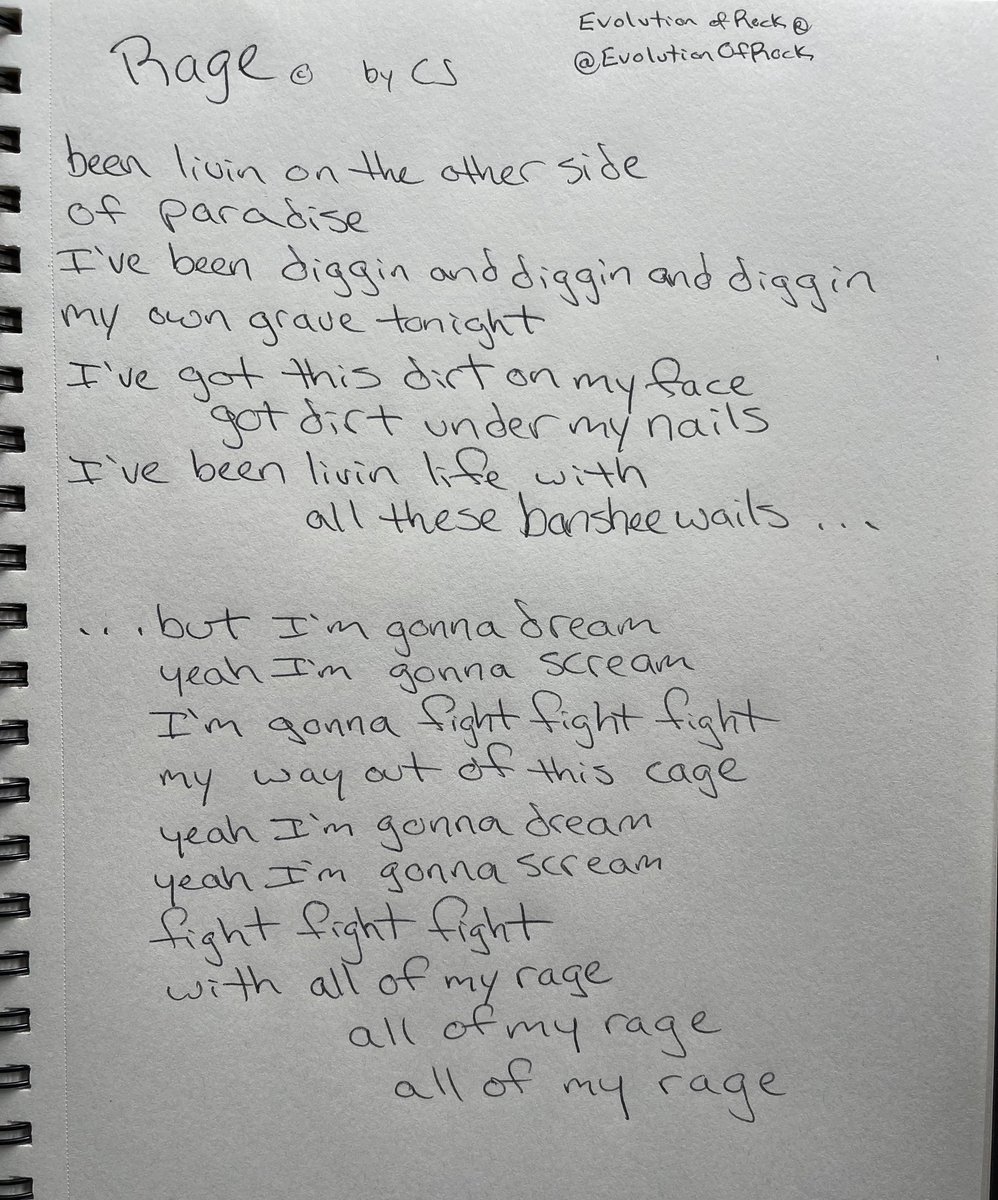 Evolution of Rock ®
@EvolutionOfRock
Rage © by CS
been livin on the other side
of paradise
I've been diggin and diggin and diggin
my own grave tonight
I've got this dirt on my face
got dirt under my nails
I've been livin life with
all these banshee wails ...
...but I'm gonna dream
yeah I'm gonna scream
I'm gonna fight fight fight
my way out of this cage
yeah I'm gonna dream
yeah I'm gonna scream
fight fight fight
with all of my rage
all of my rage
all of my rage